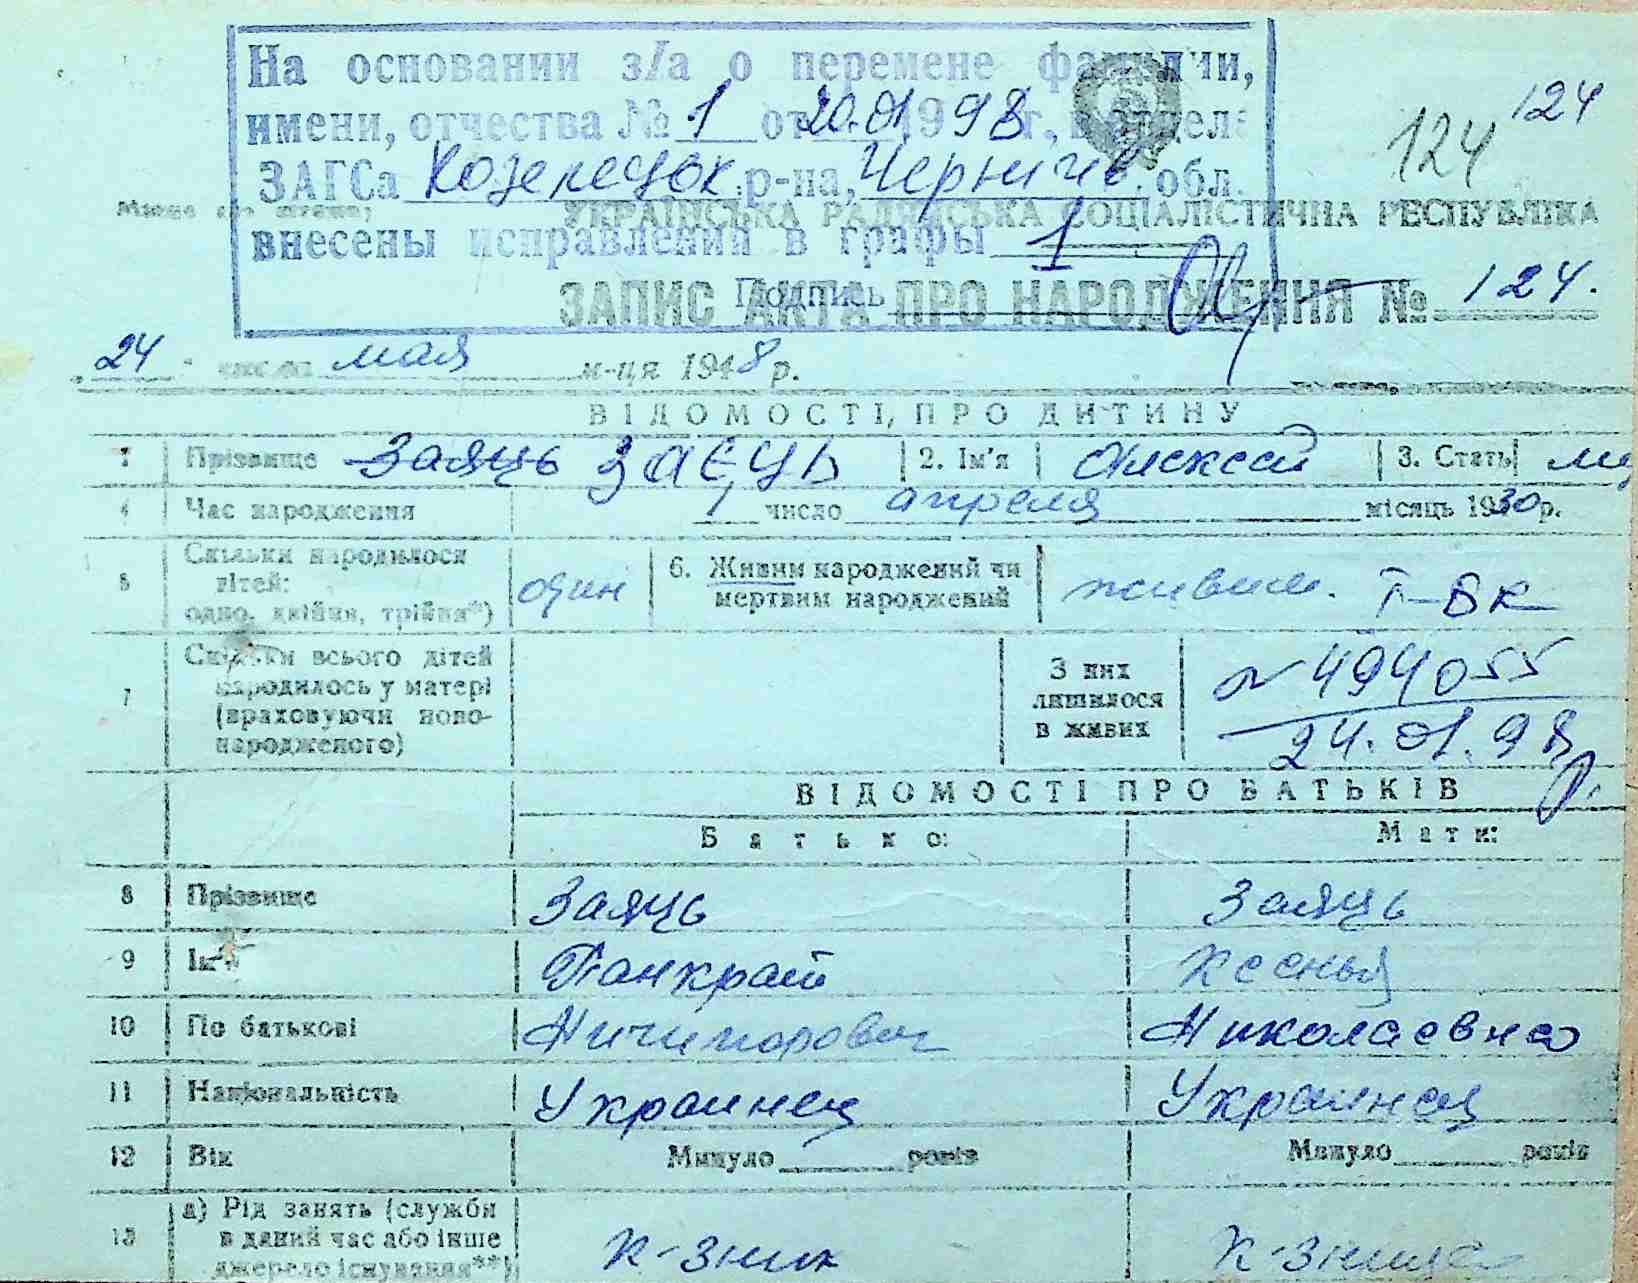 На основании з/а о перемене фамилии,
имени, отчества № 1 от 20.01 1998 г., в отделе
ЗАГСа Козелецок. р-на, Чернигів. обл.
внесены исправления в графы 1
Подпись
124 124
УКРАЇНСЬКА РАДЯНСЬКА СОЦІАЛІСТИЧНА РЕСПУБЛІКА
ЗАПИС АКТА ПРО НАРОДЖЕННЯ № 124.
24 мая м-ця 1948 р.
ВІДОМОСТІ ПРО ДИТИНУ
1 Прізвище Заяць ЗАЄЦЬ 2. Ім'я Алексей 3. Стать
4 Час народження 1 число апреля місяць 1930 р.
5 Скільки народилося дітей: одно, двійня, трійня*) один 6. Живим народжений чи мертвим народжений живым. І-ВК
7 Скільки всього дітей народилось у матері (враховуючи ново-народженого) З них лишилося в живих № 494055
24.01.98
ВІДОМОСТІ ПРО БАТЬКІВ
Батько: Мати:
8 Прізвище Заяць Заяць
9 Ім'я Панкрат Ксенья
10 По батькові Ничипорович Николаевна
11 Національність Украинец Украинец
12 Вік Минуло років Минуло років
13 а) Рід занять (служби в даний час або інше джерело існування**) к-зник к-зница